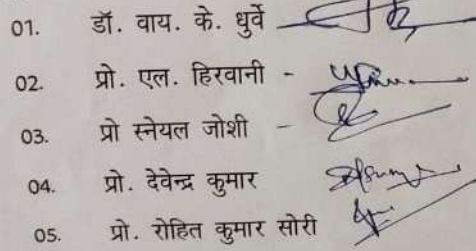 01. डॉ. वाय. के. धुर्वे
02. प्रो. एल. हिरवानी -
03. प्रो स्नेयल जोशी -
04. प्रो. देवेन्द्र कुमार
05. प्रो. रोहित कुमार सोरी